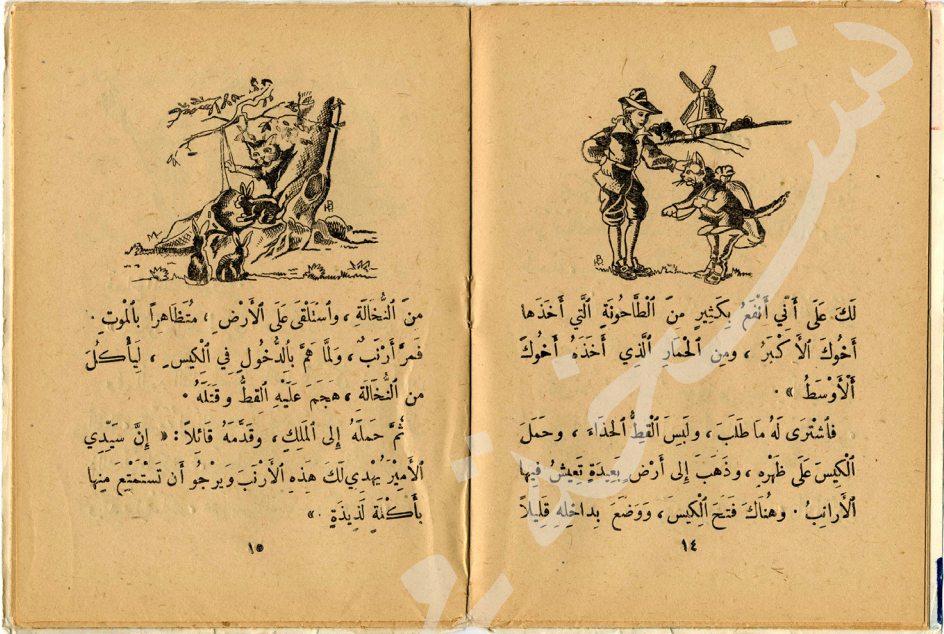 لَكَ عَلَى أَنِّي أَنْفَعُ بِكَثِيرٍ مِنَ ٱلْطَّاحُونَةِ ٱلَّتِي أَخَذَهَا
أَخُوكَ ٱلأَكْبَرُ ، ومِنِ ٱلْحِمَارِ ٱلَّذِي أَخَذَهُ أَخُوكَ
ٱلْأَوْسَطُ » .
فَاشْتَرَى لَهُ مَا طَلَبَ ، ولَبِسَ ٱلْقِطُّ ٱلْحِذَاءَ ، وحَمَلَ
ٱلْكِيسَ عَلَى ظَهْرِهِ ، وذَهَبَ إِلَى أَرْضٍ بَعِيدَةٍ تَعِيشُ فِيهَا
ٱلأَرانِبُ . وهُنَاكَ فَتَحَ ٱلْكِيسَ ، وَوَضَعَ بِدَاخِلِهِ قَلِيلاً
١٤
مِنَ ٱلنُّخَالَةِ ، وٱسْتَلْقَى عَلَى ٱلأَرْضِ ، مُتَظَاهِراً بِٱلْمَوتِ .
فَمَرَّ أَرْنَبٌ ، ولَمَّا هَمَّ بِٱلدُّخُولِ فِي ٱلْكِيسِ ، لِيَأْكُلَ
مِن ٱلنُّخَالَةِ ، هَجَمَ عَلَيْهِ ٱلقِطُّ وقَتَلَهُ .
ثُمَّ حَمَلَهُ إِلَى ٱلمَلِكِ ، وقَدَّمَهُ قَائِلاً : « إِنَّ سَيِّدِي
ٱلأَمِيْرَ يُهْدِي لَكَ هَذِهِ ٱلأَرْنَبَ وَيَرْجُو أَن تَسْتَمْتِعَ مِنْهَا
بِأَكْلَةٍ لَذِيذَةٍ . »
١٥